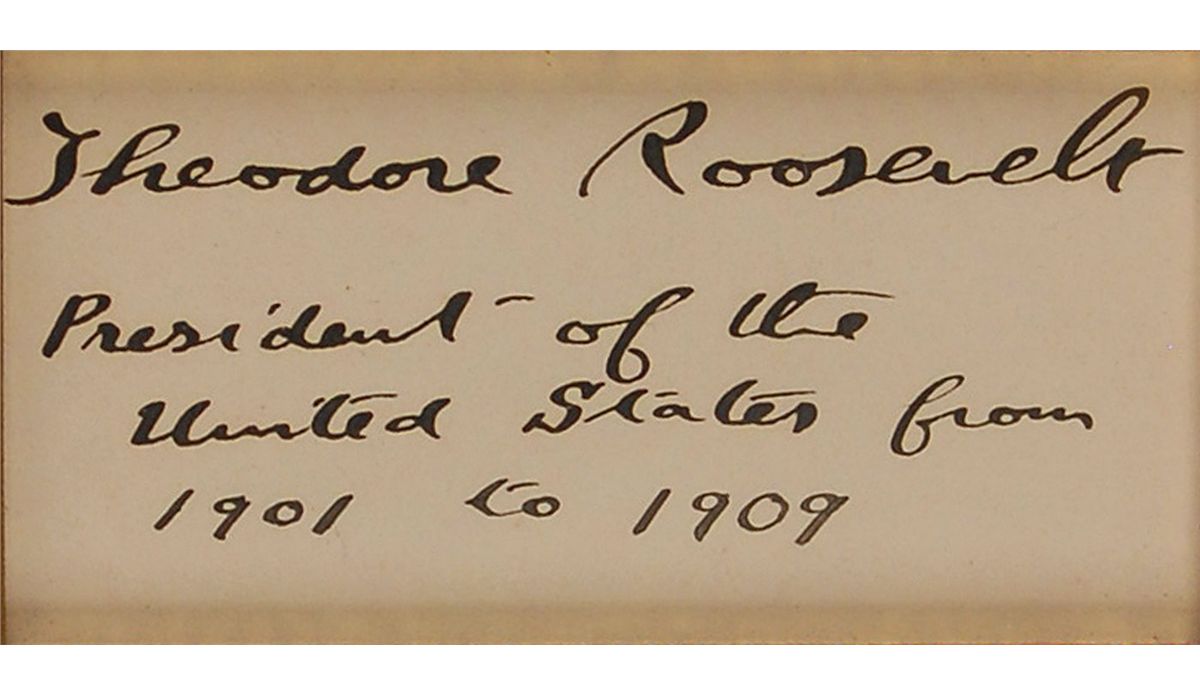 Theodore Roosevelt
President of the
United States from
1901 to 1909